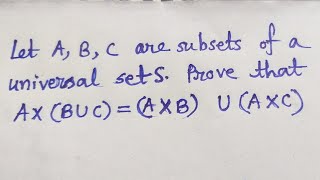 Let A, B, C are subsets of a
universal set S. Prove that
A X (B U C) = (A X B) U (A X C)